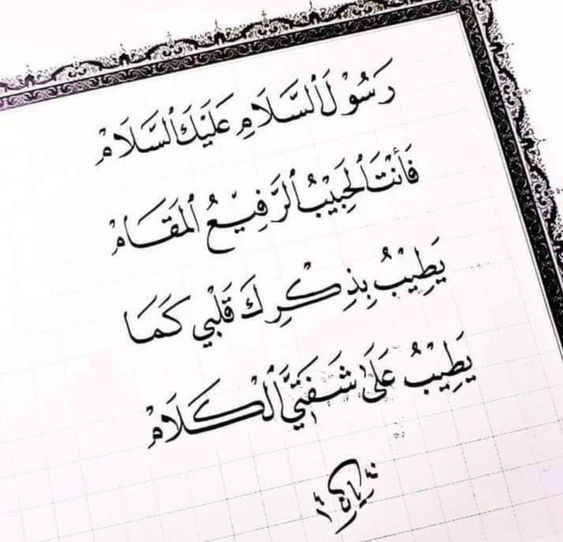 رَسُوْلَ ٱلسَّلَامِ عَلَيْكَ ٱلسَّلَامْ
فَأَنْتَ ٱلْحَبِيْبُ ٱلرَّفِيْعُ ٱلْمَقَامْ
يَطِيْبُ بِذِكْرِكَ قَلْبِي كَمَا
يَطِيْبُ عَلَىٰ شَفَتَيَّ ٱلْكَلَامْ